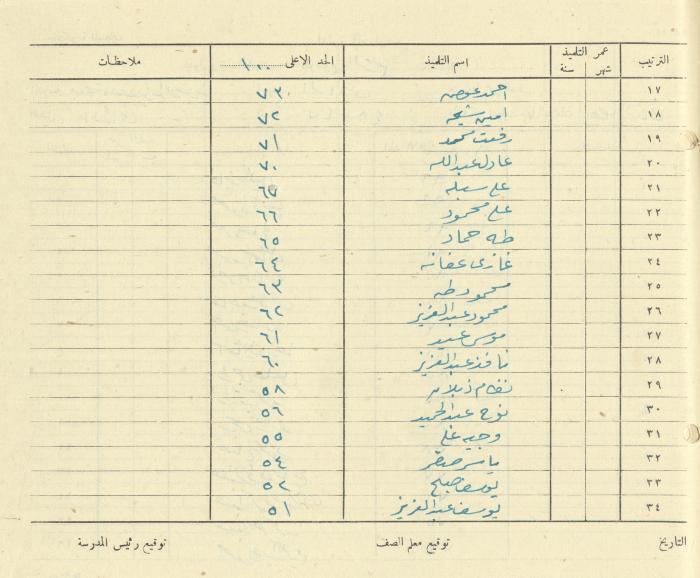 الترتيب عمر التلميذ شهر سنة اسم التلميذ الحد الاعلى ١٠٠ ملاحظات
١٧ احمد عوض ٧٣
١٨ امين شيخه ٧٢
١٩ رفعت محمد ٧١
٢٠ عادل عبدالله ٧٠
٢١ علي ٦٧
٢٢ علي محمود ٦٦
٢٣ طه حماد ٦٥
٢٤ غازي عفانه ٦٤
٢٥ محمود طه ٦٣
٢٦ محمود عبد العزيز ٦٢
٢٧ موسى عبيد ٦١
٢٨ نافذ عبد العزيز ٦٠
٢٩ نظام ٥٨
٣٠ نوح عبد الحميد ٥٦
٣١ وجيه علي ٥٥
٣٢ ياسر صقر ٥٤
٣٣ يوسف صبح ٥٢
٣٤ يوسف عبد العزيز ٥١
التاريخ توقيع معلم الصف توقيع رئيس المدرسة